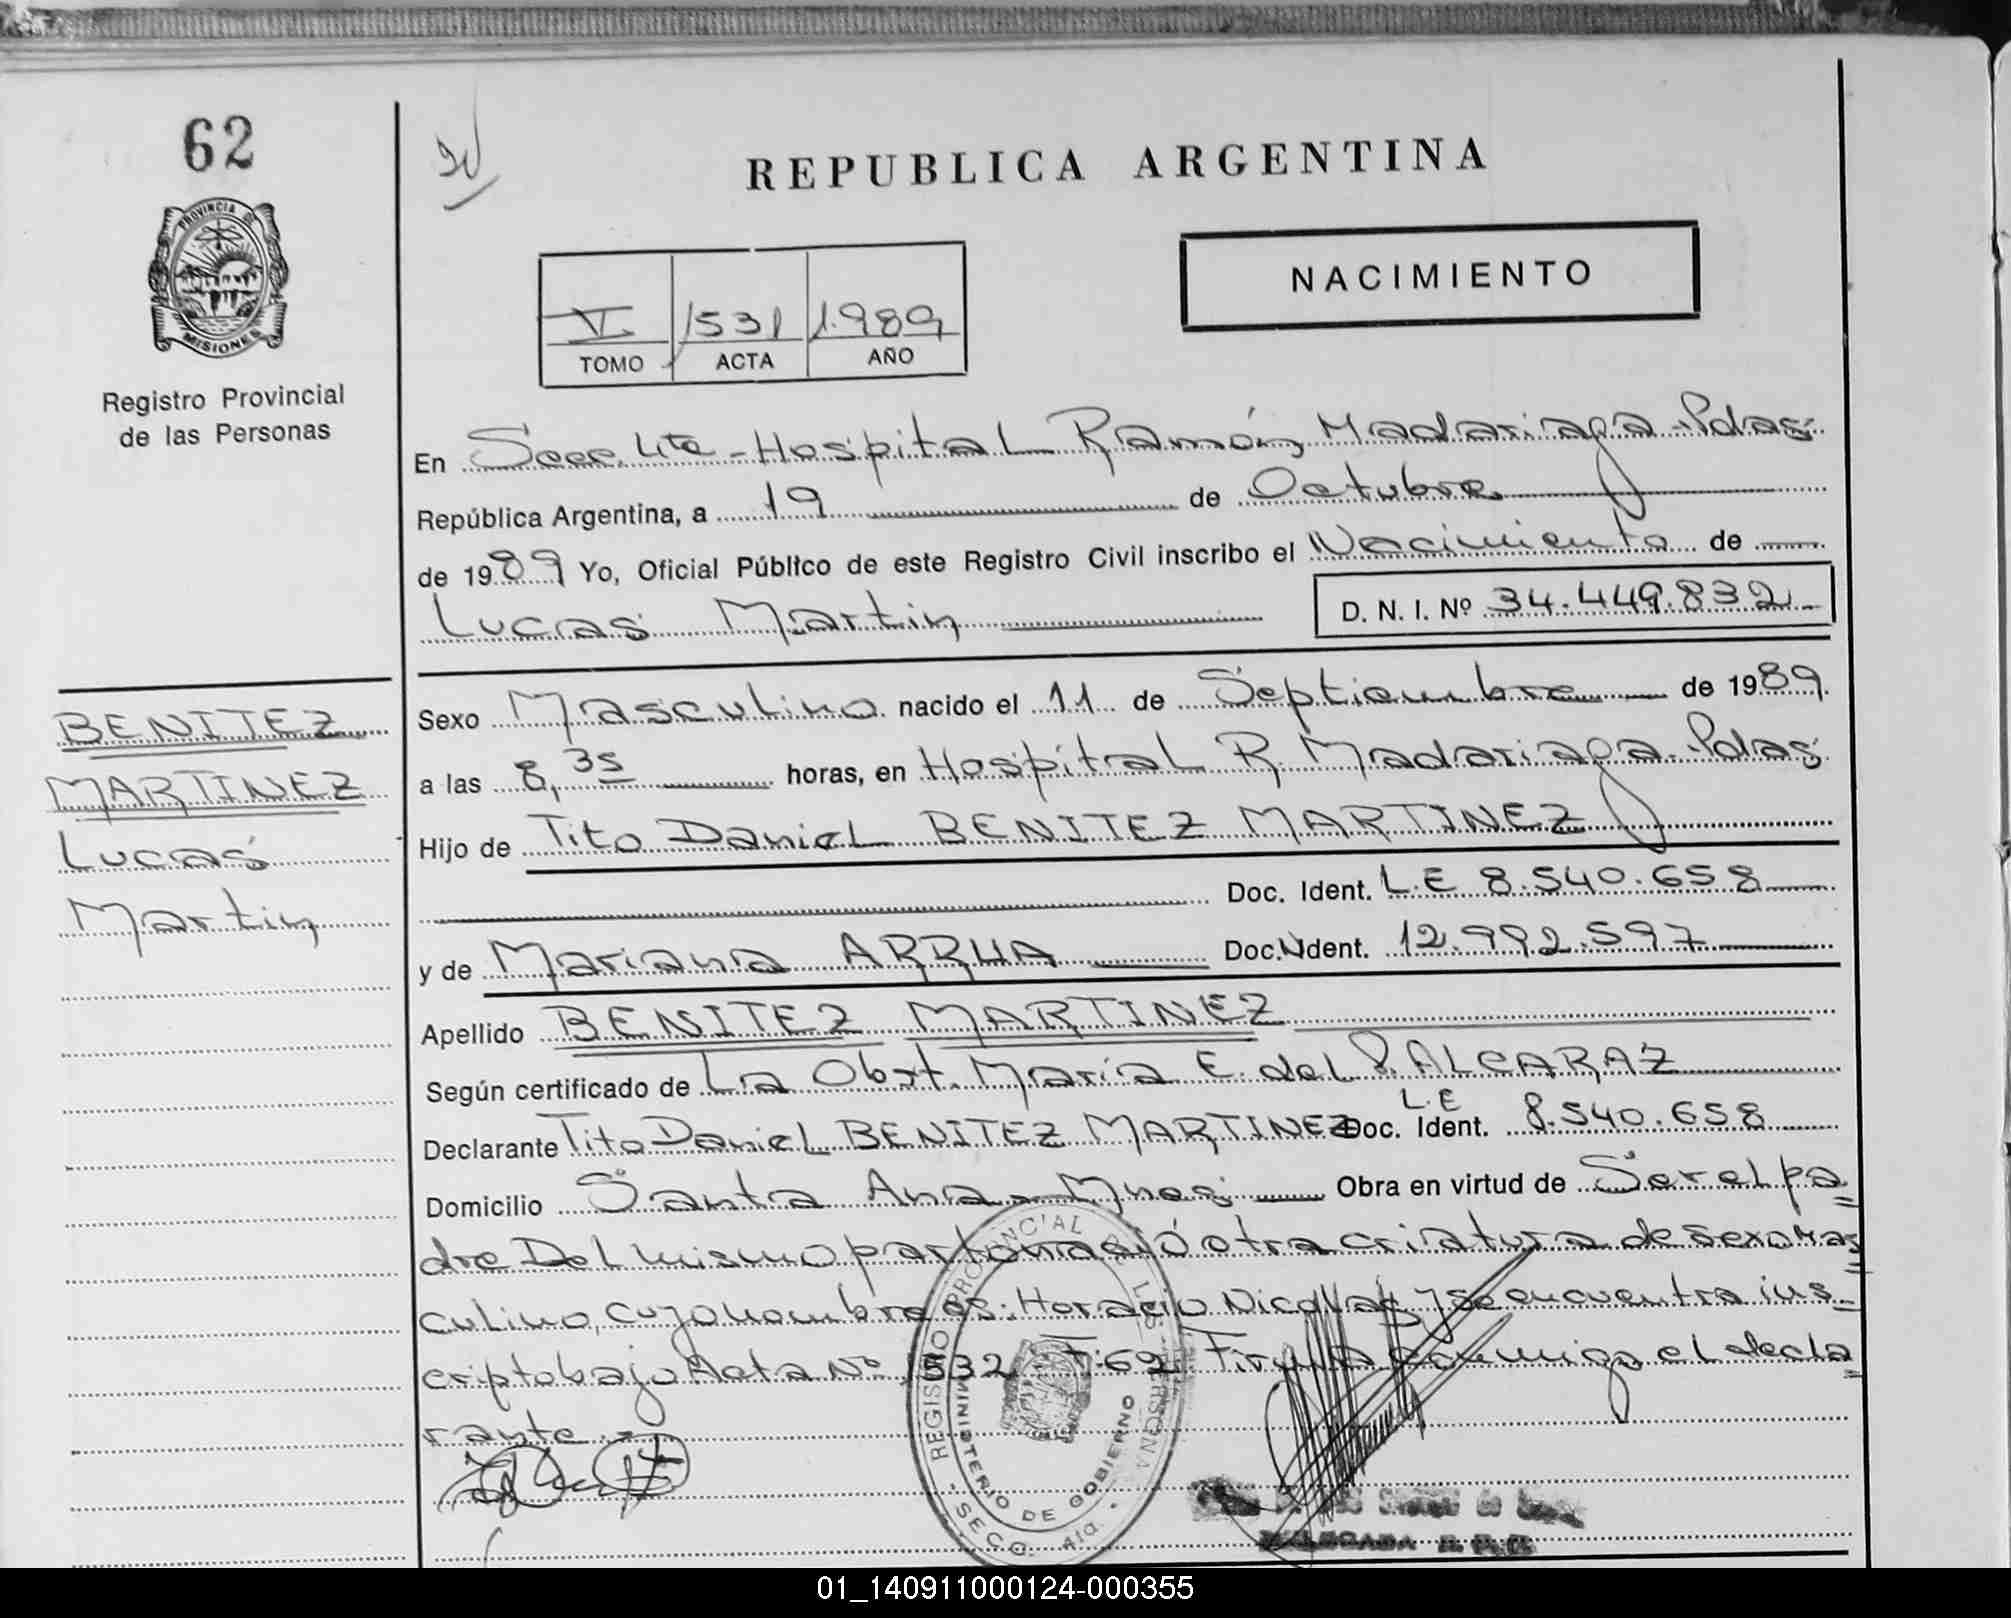 62
PROVINCIA DE
MISIONES
Registro Provincial
de las Personas
REPUBLICA ARGENTINA
NACIMIENTO
V 1531 1.989
TOMO ACTA AÑO
En Secc. 4ta - Hospital Ramón Madariaga - Pdas.
República Argentina, a 19 de Octubre
de 1989 Yo, Oficial Público de este Registro Civil inscribo el Nacimiento de
Lucas Martin
D. N. I. Nº 34.449.832
BENITEZ
MARTINEZ
Lucas
Martin
Sexo Masculino nacido el 11 de Septiembre de 1989
a las 8,35 horas, en Hospital R. Madariaga - Pdas
Hijo de Tito Daniel BENITEZ MARTINEZ
Doc. Ident. L.E 8.540.658
y de Mariana ARRUA Doc. Ident. 12.992.597
Apellido BENITEZ MARTINEZ
Según certificado de La Obst. María E. del P. ALCARAZ
Declarante Tito Daniel BENITEZ MARTINEZ Doc. Ident. L.E 8.540.658
Domicilio Santa Ana - Mnes. Obra en virtud de Ser el pa=
dre Del mismo parto nació otra criatura de sexo mas
culino, cuyo nombre es: Horacio Nicolas y se encuentra ins-
cripto bajo Acta Nº 1532 F: 62 Firma conmigo el decla
rante.-
REGISTRO PROVINCIAL DE LAS PERSONAS
MINISTERIO DE GOBIERNO
DELEGADA R.P.P.
01_140911000124-000355